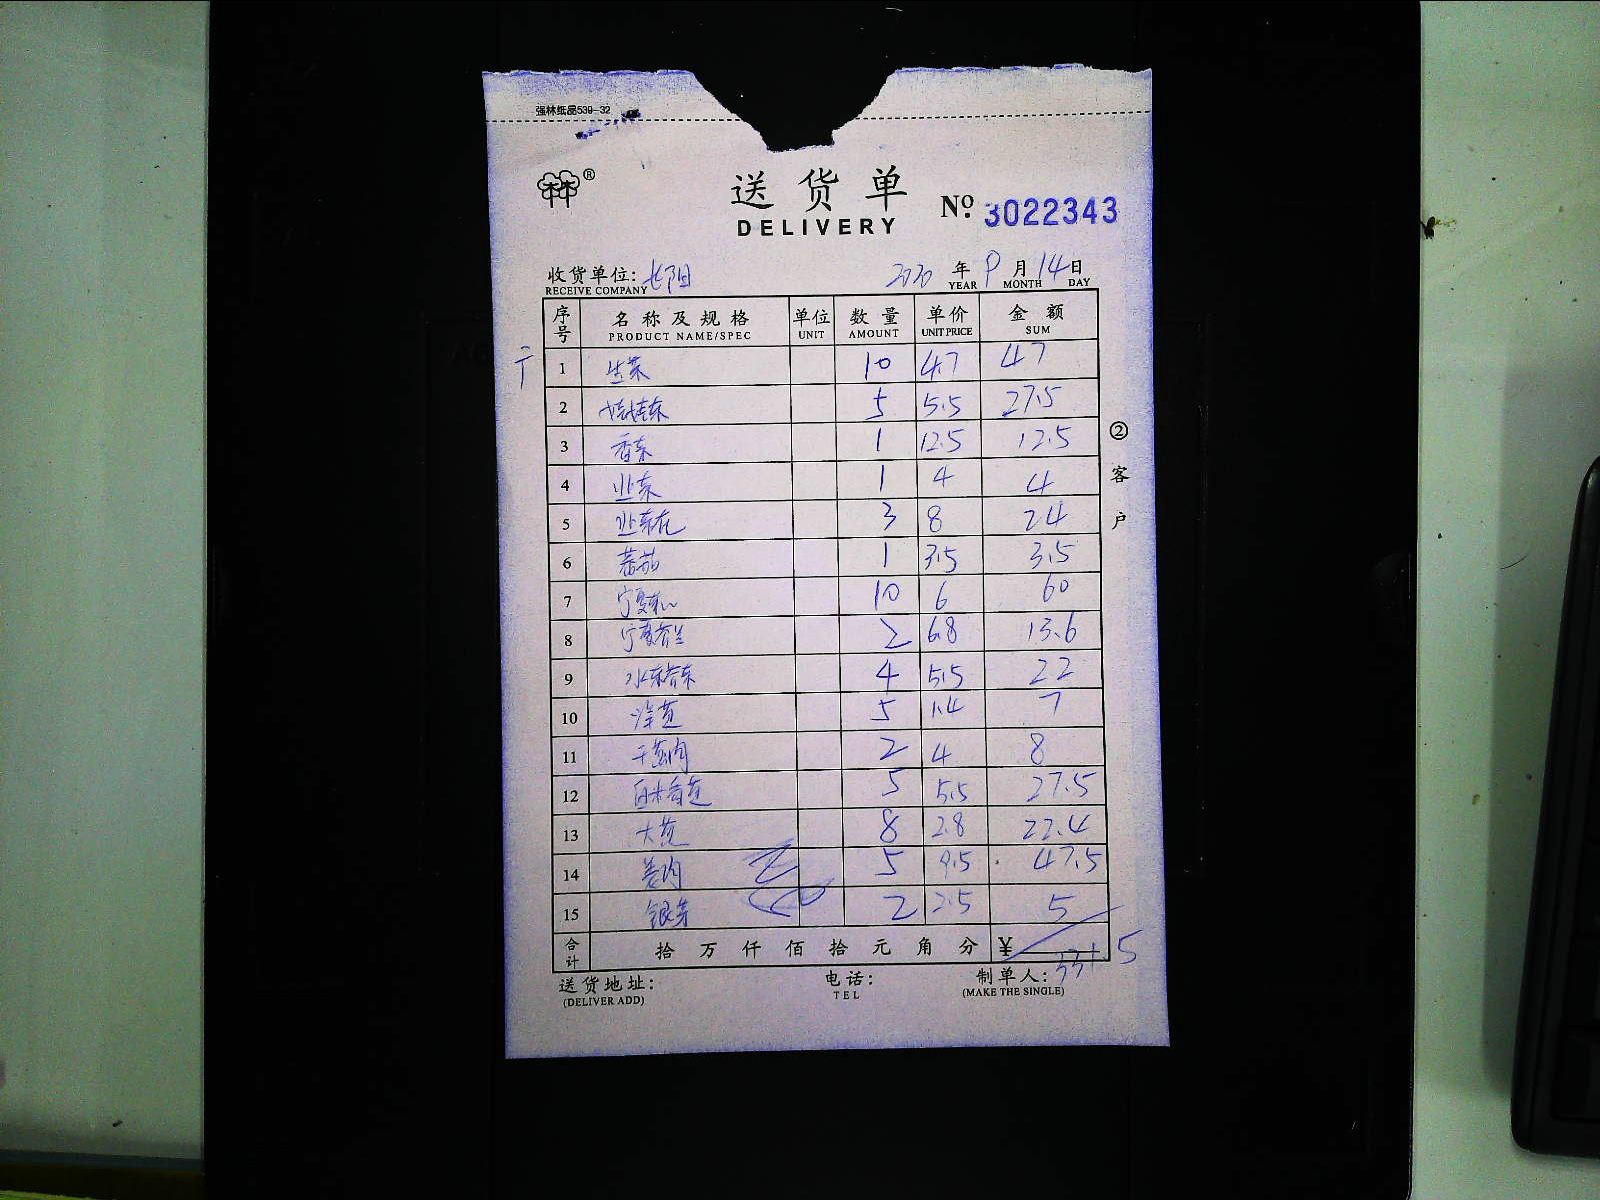 强林纸品539-32
林®
送货单
DELIVERY
No. 3022343
收货单位: 长阳 2020 年 9 月 14 日
RECEIVE COMPANY YEAR MONTH DAY
序号 名称及规格 单位 数量 单价 金额
PRODUCT NAME/SPEC UNIT AMOUNT UNIT PRICE SUM
1 生菜 10 4.7 47
2 5 5.5 27.5
3 香菜 1 12.5 12.5
4 韭菜 1 4 4
5 韭菜花 3 8 24
6 蕃茄 1 3.5 3.5
7 宁夏菜心 10 6 60
8 宁夏芥兰 2 6.8 13.6
9 水东芥菜 4 5.5 22
10 洋葱 5 1.4 7
11 干葱肉 2 4 8
12 5 5.5 27.5
13 大葱 8 2.8 22.4
14 姜肉 5 9.5 47.5
15 银芽 2 2.5 5
合计 拾 万 仟 佰 拾 元 角 分 ¥ 331.5
② 客户
送货地址: 电话: 制单人:
(DELIVER ADD) TEL (MAKE THE SINGLE)